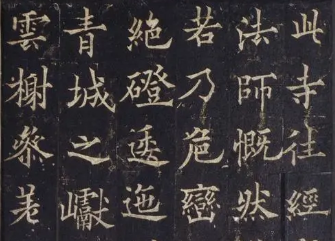 此寺往經
法師慨然
若乃危巒
絕磴逶迤
青城之巘
雲榭參差